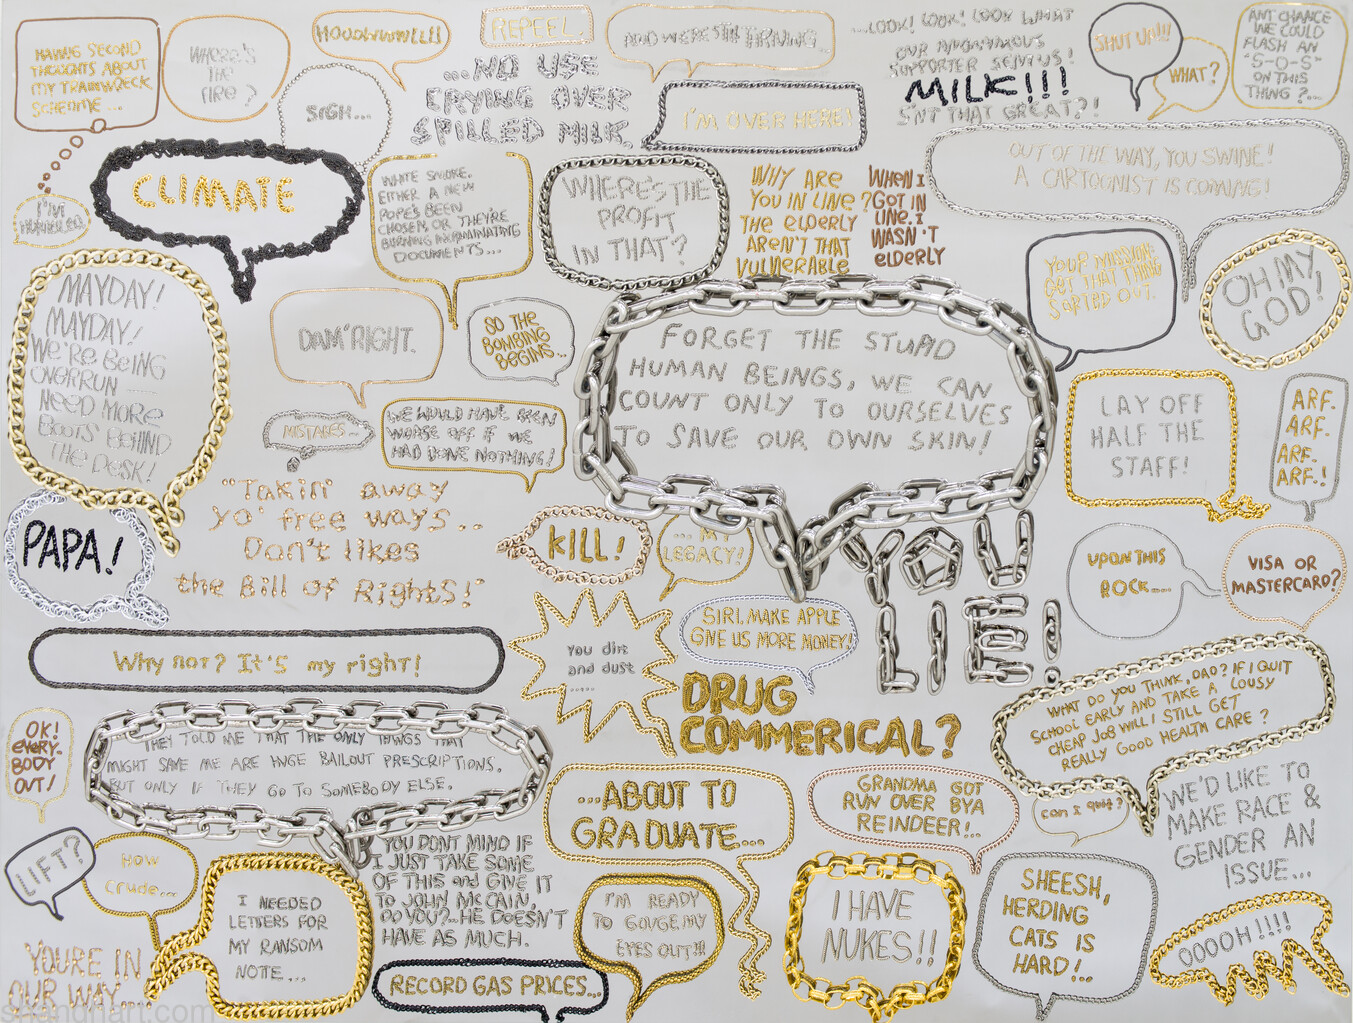 HAVING SECOND
THOUGHTS ABOUT
MY TRAINWRECK
SCHEME...
WHERE'S
THE
FIRE?
SIGH...
REPEEL.
...NO USE
CRYING OVER
SPILLED MILK
I'M OVER HERE!
...LOOK! LOOK! LOOK WHAT
OUR ANONYMOUS
SUPPORTER SENT US!
MILK!!!
ISN'T THAT GREAT?!
SHUT UP!!!
WHAT?
ANY CHANCE
WE COULD
FLASH AN
"S-O-S"
ON THIS
THING?...
CLIMATE
I'VE
WHITE SMOKE.
EITHER A NEW
POPE'S BEEN
CHOSEN OR THEY'RE
BURNING INCRIMINATING
DOCUMENTS...
WHERE'S THE
PROFIT
IN THAT?
WHY ARE
YOU IN LINE?
THE ELDERLY
AREN'T THAT
VULNERABLE
WHEN I
GOT IN
LINE, I
WASN'T
ELDERLY
OUT OF THE WAY, YOU SWINE!
A CARTOONIST IS COMING!
YOUR MISSION:
GET THAT THING
SORTED OUT.
OH MY
GOD!
MAYDAY!
MAYDAY!
WE'RE BEING
OVERRUN
NEED MORE
BOOTS BEHIND
THE DESK!
DAM' RIGHT.
SO THE
BOMBING
BEGINS...
MISTAKES...
WE WOULD HAVE BEEN
WORSE OFF IF WE
HAD DONE NOTHING!
FORGET THE STUPID
HUMAN BEINGS, WE CAN
COUNT ONLY TO OURSELVES
TO SAVE OUR OWN SKIN!
LAY OFF
HALF THE
STAFF!
ARF.
ARF.
ARF.
ARF.!
PAPA!
"Takin' away
yo' free ways..
Don't likes
the Bill of Rights!"
KILL!
... MY
LEGACY!
YOU
LIE!
UPON THIS
ROCK....
VISA OR
MASTERCARD?
Why not? It's my right!
You dirt
and dust
.....
SIRI, MAKE APPLE
GIVE US MORE MONEY!
DRUG
COMMERICAL?
WHAT DO YOU THINK, DAD? IF I QUIT
SCHOOL EARLY AND TAKE A LOUSY
CHEAP JOB WILL I STILL GET
REALLY GOOD HEALTH CARE?
OK!
EVERY-
BODY
OUT!
THEY TOLD ME THAT THE ONLY THINGS THAT
MIGHT SAVE ME ARE HUGE BAILOUT PRESCRIPTIONS.
BUT ONLY IF THEY GO TO SOMEBODY ELSE.
...ABOUT TO
GRADUATE....
GRANDMA GOT
RUN OVER BY A
REINDEER!..
can I quit?
WE'D LIKE TO
MAKE RACE &
GENDER AN
ISSUE...
LIFT?
HOW
Crude...
I NEEDED
LETTERS FOR
MY RANSOM
NOTE...
YOU DON'T MIND IF
I JUST TAKE SOME
OF THIS and GIVE IT
TO JOHN McCAIN,
DO YOU?...HE DOESN'T
HAVE AS MUCH.
I'M READY
TO GOUGE MY
EYES OUT!!!
I HAVE
NUKES!!
SHEESH,
HERDING
CATS IS
HARD!..
OOOOH!!!!
YOU'RE IN
OUR WAY....
RECORD GAS PRICES...
shanghart.com